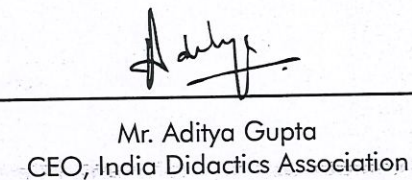 Aditya
Mr. Aditya Gupta
CEO, India Didactics Association